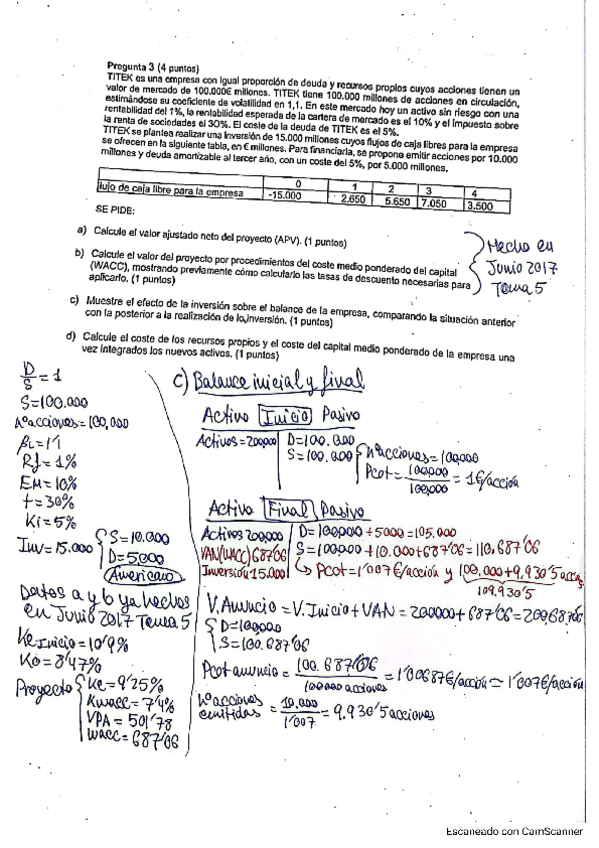 Pregunta 3 (4 puntos)
TITEK es una empresa con igual proporción de deuda y recursos propios cuyos acciones tienen un
valor de mercado de 100.000€ millones. TITEK tiene 100.000 millones de acciones en circulación,
estimándose su coeficiente de volatilidad en 1,1. En este mercado hoy un activo sin riesgo con una
rentabilidad del 1%, la rentabilidad esperada de la cartera de mercado es el 10% y el impuesto sobre
la renta de sociedades el 30%. El coste de la deuda de TITEK es el 5%.
TITEK se plantea realizar una inversión de 15.000 millones cuyos flujos de caja libres para la empresa
se ofrecen en la siguiente tabla, en € millones. Para financiarla, se propone emitir acciones por 10.000
millones y deuda amortizable al tercer año, con un coste del 5%, por 5.000 millones.
0 1 2 3 4
flujo de caja libre para la empresa -15.000 2.650 5.650 7.050 3.500
SE PIDE:
a) Calcule el valor ajustado neto del proyecto (APV). (1 puntos)
b) Calcule el valor del proyecto por procedimientos del coste medio ponderado del capital
(WACC), mostrando previamente cómo calcularlo las tasas de descuento necesarias para
aplicarlo. (1 puntos)
Hecho en
Junio 2017
Tema 5
c) Muestre el efecto de la inversión sobre el balance de la empresa, comparando la situación anterior
con la posterior a la realización de lo inversión. (1 puntos)
d) Calcule el coste de los recursos propios y el coste del capital medio ponderado de la empresa una
vez integrados los nuevos activos. (1 puntos)
D/S = 1
S=100.000
Nº acciones=100,000
βL=1'1
Rf=1%
EM=10%
t=30%
Ki=5%
Inv=15.000 S=10.000
D=5.000
Americano
Datos a y b ya hechos
en Junio 2017 Tema 5
Ke Inicio=10'9%
Ko=8'47%
Proyecto Ke=9'25%
Kwacc=7'4%
VPA=501'78
wacc=687'06
c) Balance inicial y final
Activo Inicio Pasivo
Activos=200,000 D=100.000
S=100.000 Nº acciones=100,000
Pcot=100,000/100,000=1€/acción
Activo Final Pasivo
Activos 200,000 D=100,000+5000=105.000
VAN(WACC) 687'06 S=100,000+10.000+687'06=110.687'06
Inversión 15.000 ↳ Pcot=1'007€/acción y 100,000+9.930'5 acciones
109.930'5
V. Anuncio=V. Inicio+VAN=200000+687'06=200,687'06
D=100,000
S=100.687'06
Pcot anuncio=100.687'06/100000 acciones=1'00687€/acción≃1'007€/acción
Nº acciones emitidas=10.000/1'007=9.930'5 acciones
Escaneado con CamScanner